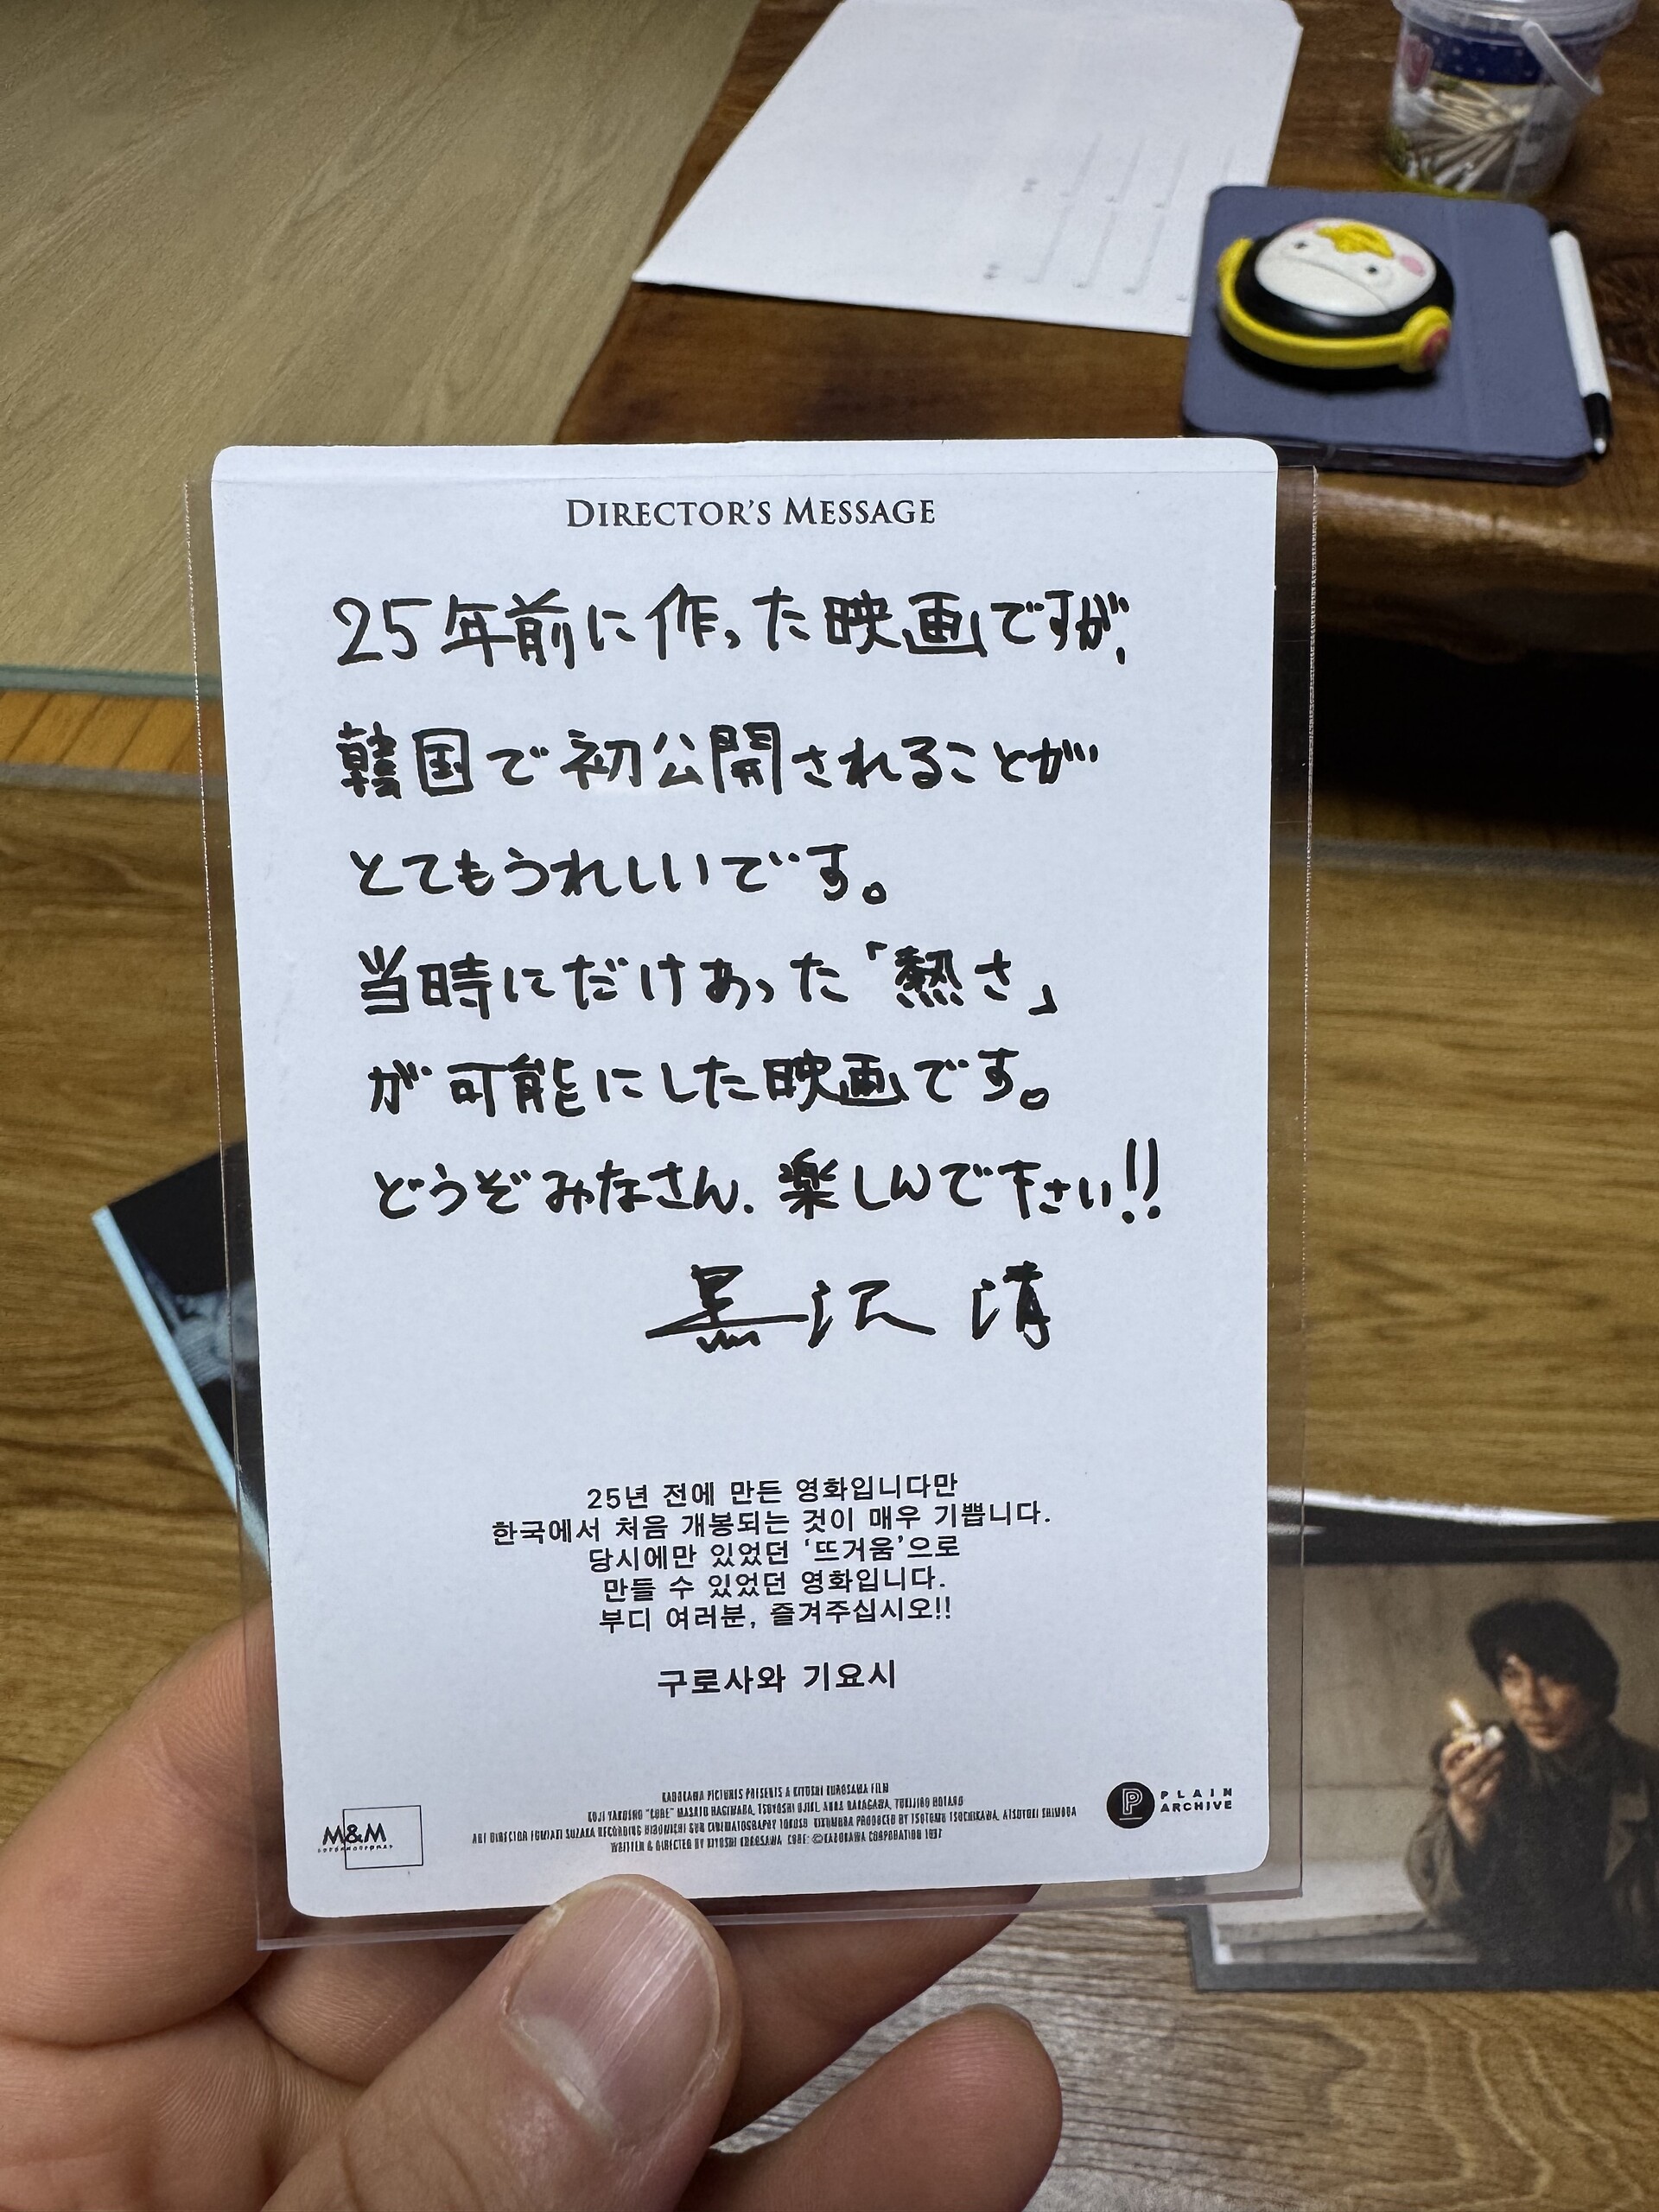 DIRECTOR'S MESSAGE
25年前に作った映画ですが、
韓国で初公開されることが
とてもうれしいです。
当時にだけあった「熱さ」
が可能にした映画です。
どうぞみなさん、楽しんで下さい!!
黒沢 清
25년 전에 만든 영화입니다만
한국에서 처음 개봉되는 것이 매우 기쁩니다.
당시에만 있었던 '뜨거움'으로
만들 수 있었던 영화입니다.
부디 여러분, 즐겨주십시오!!
구로사와 기요시
KADOKAWA PICTURES PRESENTS A KIYOSHI KUROSAWA FILM
KOJI YAKUSHO "CURE" MASATO HAGIWARA, TSUYOSHI UJIKI, ANNA NAKAGAWA, YUKIJIRO HOTARU
ART DIRECTOR TOMOYUKI RECORDING HIROMICHI CINEMATOGRAPHY TOKUSHO KIKUMURA PRODUCED BY TSUTOMU TSUCHIKAWA, ATSUYUKI SHIMODA
WRITTEN & DIRECTED BY KIYOSHI KUROSAWA CURE: ©KADOKAWA CORPORATION 1997
M&M
P PLAIN
ARCHIVE